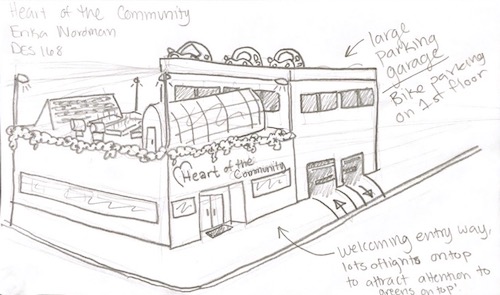 Heart of the Community
Erika Wordman
DES 168
large
parking
garage
Bike parking
on 1st floor
Heart of the
Community
Welcoming entry way,
lots of lights on top
to attract attention to
greens on top!